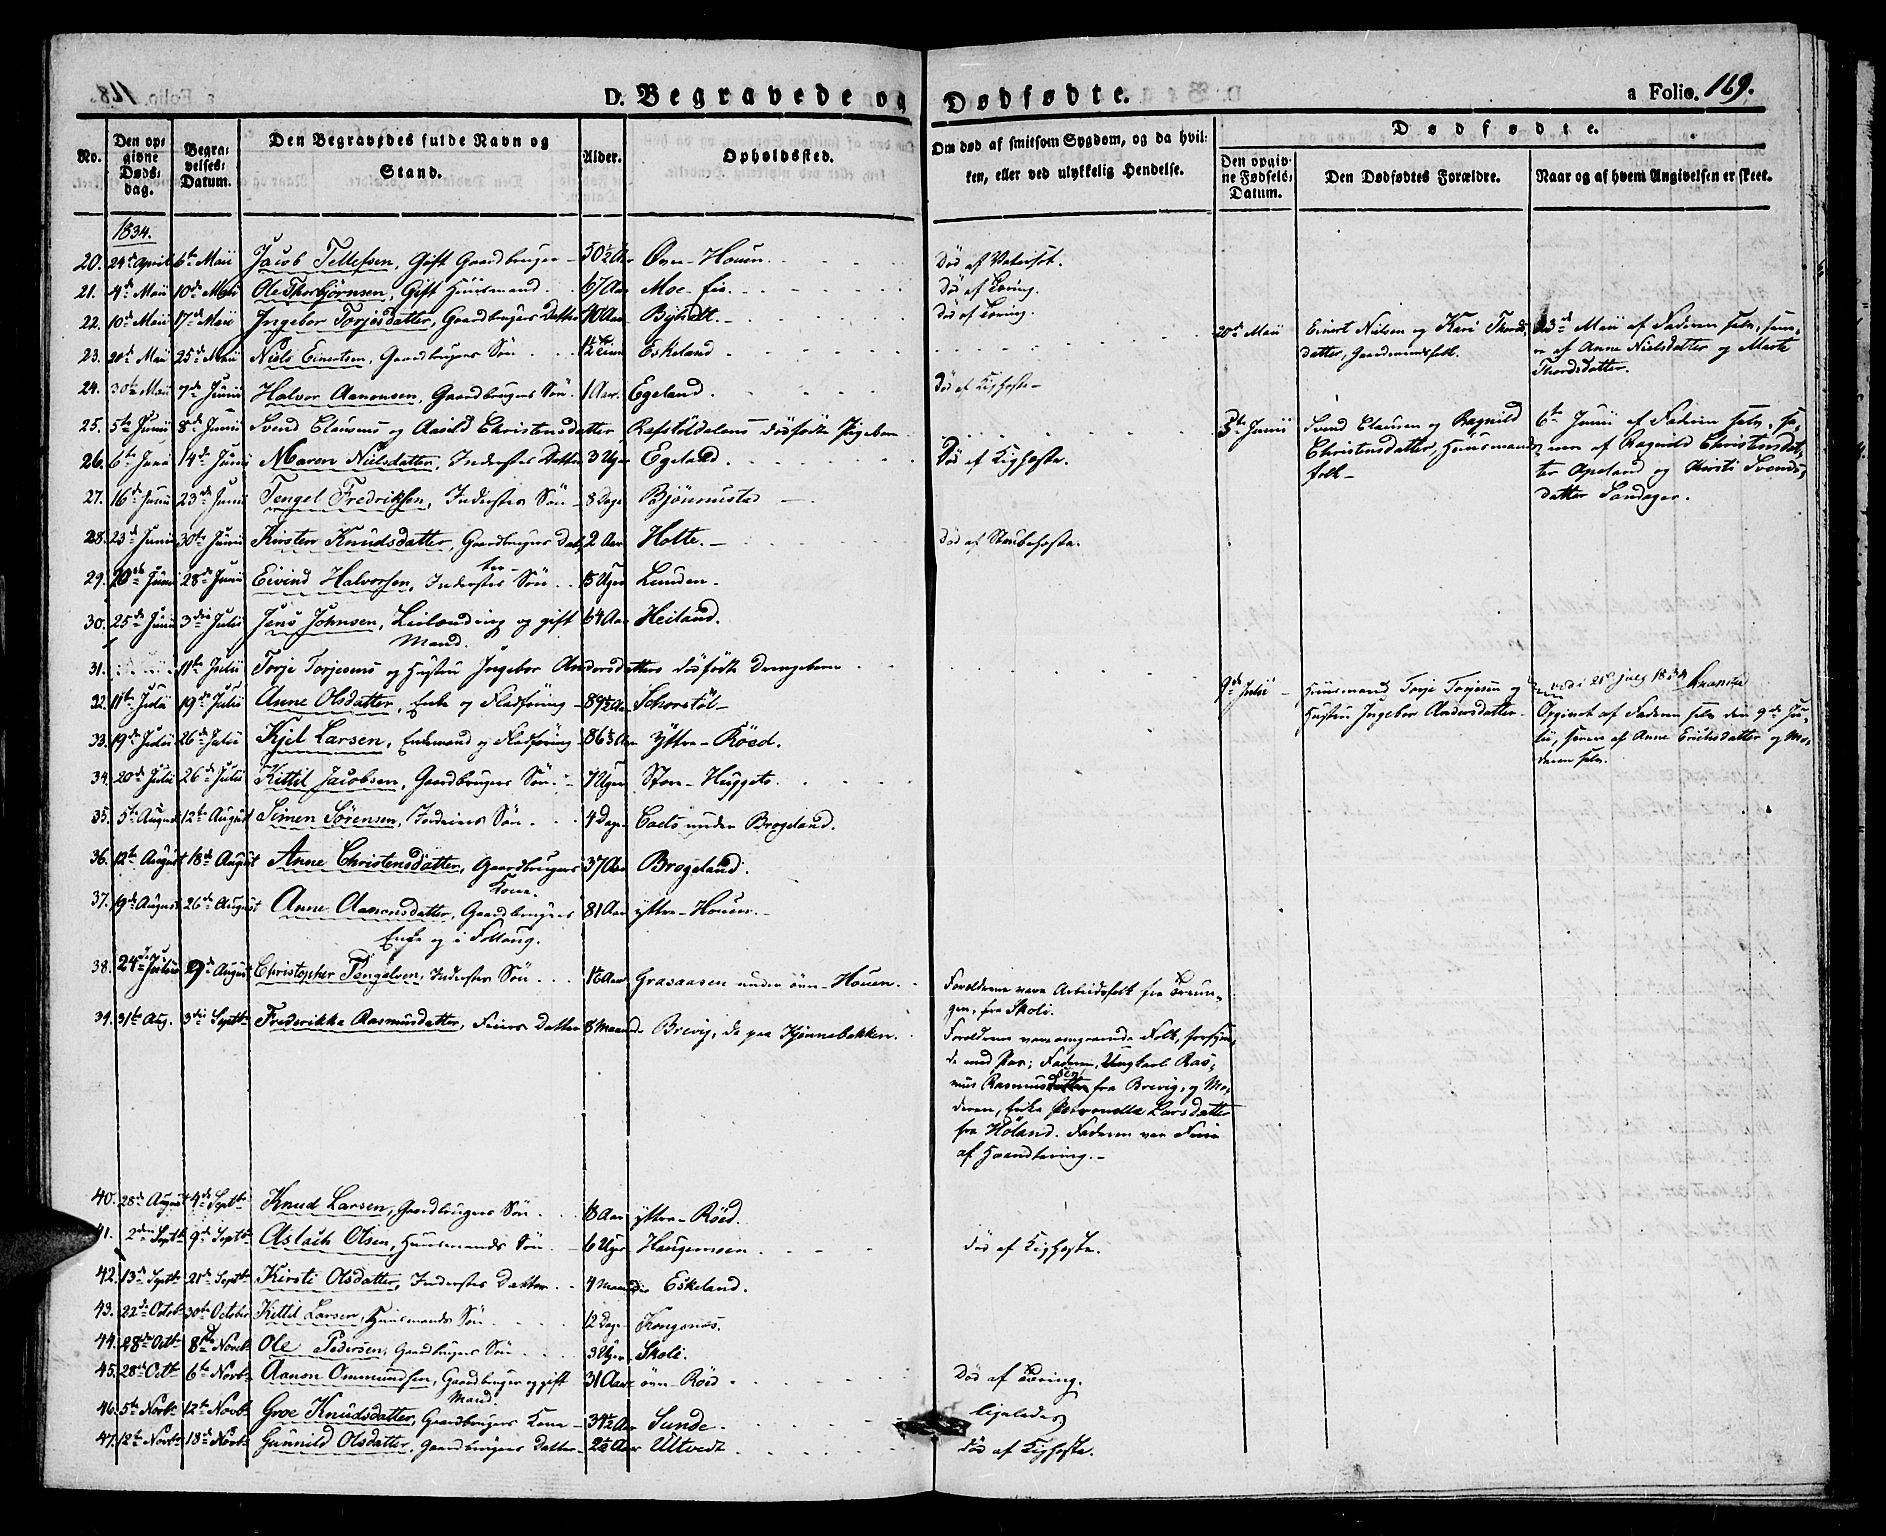 D. Begravede og Dødfødte.
a Folio. 169.
No.
Den opgivne Dødsdag.
Begravelses-Datum.
Den Begravedes fulde Navn og Stand.
Alder.
Opholdssted.
Om død af smitsom Sygdom, og da hvilken, eller ved ulykkelig Hendelse.
Dødfødte.
Den opgivne Fødsels-Datum.
Den Dødfødtes Forældre.
Naar og af hvem Angivelsen er skeet.
1834.
20. 24de April 6te Maii Jacob Tellefsen, Gift Gaardbruger 50½ Aar Øvre-Houen Død af Vatersot.
21. 4de Maii 10de Maii Ole Thorbjørnsen, Gift Huusmand 67 Aar Moe-Eie. Død af Tæring.
22. 10de Maii 17de Maii Ingebor Torjesdatter, Gaardbrugers Datter 40 Aar Død af Tæring.
23. 20de Maii 25de Maii Niels Einertsen, Gaardbrugers Søn ½ Time Eskeland
20de Maii Einert Nielsen og Kari Thords-
datter, Gaardmandsfolk.
23de Maii af Faderen selv, sam-
af Anne Nielsdatter og Marte
Thordsdatter.
24. 30te Maii 7de Junii Halvor Aanonsen, Gaardbrugers Søn 1 Aar. Egeland Død af Kighoste
25. 5te Junii 8de Junii Svend Clausens og Christensdatter dødfødte Pigebarn
5te Junii Svend Clausen og Ragnild
Christensdatter, Huusmands-
folk
6te Junii af Faderen selv,
af Ragnild Christensdat-
ter Apeland og Kirsti Svends-
datter Sandager.
26. 6te Junii 14de Junii Maren Nielsdatter, Inderstes Datter 3 Uger Egeland Død af Kighoste.
27. 16de Junii 23de Junii Tengel Fredriksen, Inderstes Søn 8 Dage Bjønnestad
28. 23de Junii 30te Junii Kirsten Knudsdatter, Gaardbrugers Dat-
ter 2 Aar Holte. Død af Strubehoste.
29. 20de Junii 28de Junii Eivind Halvorsen, Inderstes Søn 5 Uger Lunden
30. 25de Junii 3die Julii Jens Johnsen, Leilænding og gift
Mand. 64 Aar Heiland.
31. 11te Julii Torje Torjesens og Hustru Ingebor Andersdatters dødfødte Drengebarn
9de Julii Huusmand Torje Torjesen og
Hustru Ingebor Andersdatter
Opgivet af Faderen selv den 9de Ju-
lii, samt af Anne Erichsdatter og Mo-
deren selv.
32. 11te Julii 19de Julii Anne Olsdatter, Enke og Fledføring 89½ Aar Schorstøl
33. 19de Julii 26de Julii Kjel Larsen, Enkemand og Fledføring 86½ Aar Yttre-Røed.
34. 20de Julii 26de Julii Kittil Jacobsen, Gaardbrugers Søn 7 Uger
35. 5te August 12te August Simen Sørensen, Søn 4 Dage under Brogeland.
36. 12te August 18de August Anne Christensdatter, Gaardbrugers
Kone. 37 Aar Brogeland.
37. 19de August 26de August Anne Aanonsdatter, Gaardbrugers
Enke og i Follaug. 81 Aar yttre-Houen
38. 24de Julii 9de August Christopher Tengelsen, Inderstes Søn Aar Grasaasen under øvre-Houen.
Forældrene vare Arbeidsfolk fra
gen, fra Skoli.
39. 31te Aug. 3die Septbr Frederikke Rasmusdatter, Feiers Datter 8 Maaneder Brevig, da paa Kjennebekken.
Forældrene vare omgaaende Folk, forsynede
med Pas; Faderen, Ungkarl Ras-
mus Rasmussen fra Brevig, og Mo-
deren, Enke Petronelle Larsdatter
fra Høland. Faderen var Feier
af Haandtering.
40. 28de August 4de Septbr Knud Larsen, Gaardbrugers Søn Aar yttre-Røed.
41. 2den Septbr 9de Septbr Aslach Olsen, Huusmands Søn 6 Uger Haugemoen Død af Kighoste.
42. 13de Septbr 21de Septbr Kirsti Olsdatter, Inderstes Datter 4 Maaneder Eskeland.
43. 22de Octbr 30te October Kittil Larsen, Huusmands Søn 12 Dage
44. 28de Octbr 8de Novbr Ole Pedersen, Gaardbrugers Søn 3 Uger Skoli.
45. 28de Octbr 6te Novbr Aanon Ommundsen, Gaardbruger og gift
Mand. 31 Aar øvre-Røed Død af Tæring.
46. 5te Novbr 12te Novbr Groe Knudsdatter, Gaardbrugers Kone 34½ Aar Sunde ligeledes
47. 12te Novbr 18de Novbr Gunnild Olsdatter, Gaardbrugers Datter 2½ Aar Ultvedt Død af Kighoste.